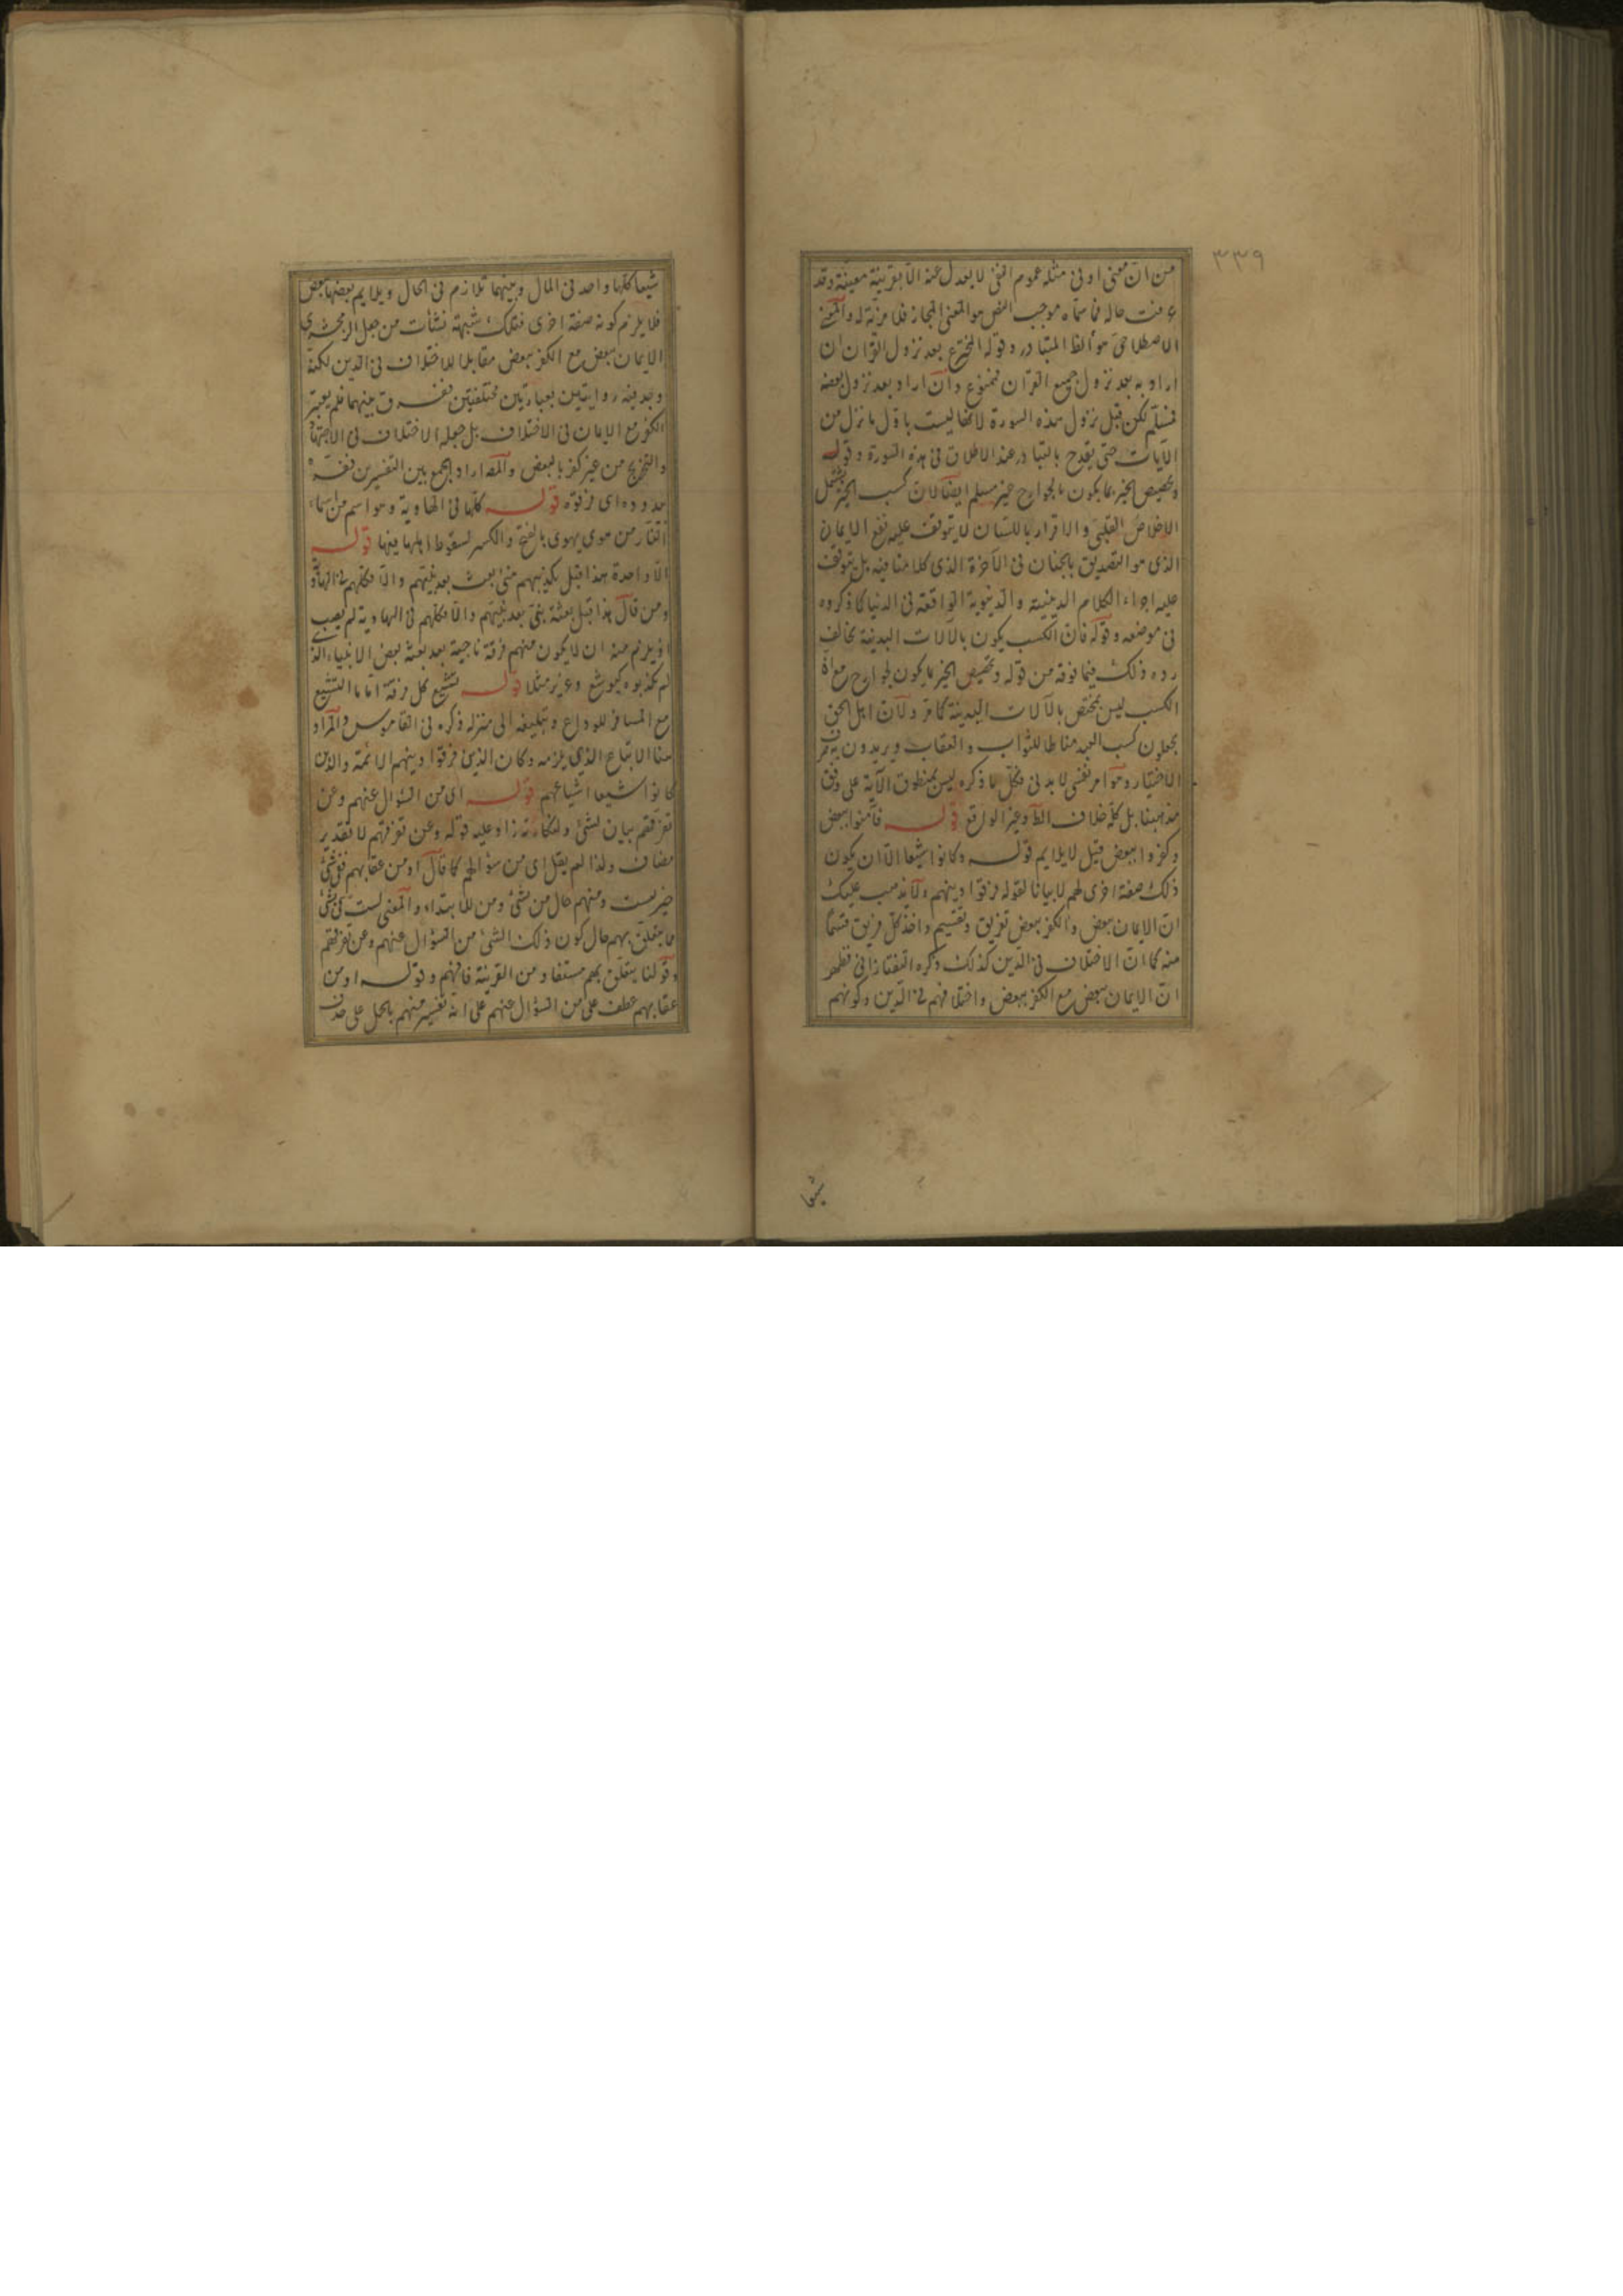 ٣٣٩
من ان معنى او فى مثله عموم النفى لا يعدل عنه الا بقرينة معينة وقد
عرفت حاله فما سماه موجب النص هو المعنى المجاز فلا مزية له والمعنى
الاصطلاحى هو ايضا المتبادر وقوله المخترع بعد نزول القران ان
اراد به بعد نزول جميع القران فممنوع وان اراد بعد نزول بعضه
فمسلم لكن قبل نزول هذه السورة لانها ليست باول ما نزل من
الايات حتى يقدح بالتبادر عند الاطلاق فى هذه السورة وقوله
وتخصيص الخير بما يكون بالجوارح غير مسلم ايضا لان كسب الخير يشمل
الاخلاص القلبى والاقرار باللسان لا يتوقف عليه نفع الايمان
الذى هو التصديق بالجنان فى الآخرة الذى كلامنا فيه بل يتوقف
عليه اجراء الكلام الدينية والدنيوية الواقعة فى الدنيا كما ذكروه
فى موضعه وقوله فان الكسب يكون بالآلات البدنية يخالف
رده ذلك فيما فوقه من قوله وتخصيص الخير بما يكون بالجوارح مع ان
الكسب ليس بمختص بالآلات البدنية كما مر ولان اهل الحق
يجعلون كسب العبد مناطا للثواب والعقاب ويريدون به صرف
الاختيار وهو امر نفسى لا بدنى فكل ما ذكره ليس بمنطوق الآية على وفق
مذهبنا بل كله خلاف الظ وغير الواقع قوله فآمنوا ببعض
وكفروا ببعض قيل لا يلايم قوله وكانوا شيعا الا ان يكون
ذلك صفة اخرى لهم لا بيانا لقوله فرقوا دينهم ولا يذهب عليك
ان الايمان ببعض والكفر ببعض تفريق وتقسيم واخذ كل فريق قسما
منه كما ان الاختلاف فى الدين كذلك ذكره التفتازانى فظهر
ان الايمان ببعض مع الكفر ببعض واختلافهم فى الدين وكونهم
شيعا
شيعا كلها واحد فى المآل وبينهما تلازم فى الحال ويلايم بعضها بعض
فلا يلزم كونه صفة اخرى فتلك شبهة نشأت من جعل الزمخشرى
الايمان ببعض مع الكفر ببعض مقابلا للاختلاف فى الدين لكنه
وجد فيه روايتين بعبارتين مختلفتين ففرق بينهما فلم يعتبر
الكفر مع الايمان فى الاختلاف بل جعله الاختلاف فى الاجتهاد
والتخريج من غير كفر بالبعض والمص اراد الجمع بين التفسيرين
قوله كلها فى الهاوية وهو اسم من اسماء
النار من هوى يهوى بالفتح والكسر لسقوط اهلها فيها قوله
الا واحدة هذا قبل تكذيبهم متى بعث بعد نبيهم والا فكلهم فى الهاوية
ومن قال هذا قبل بعثة نبى بعد نبيهم والا فكلهم فى الهاوية لم يصب
اذ يلزم منه ان لا يكون منهم فرقة ناجية بعد بعثة بعض الانبياء الذى
لم يكذبوه كيوشع وعزير مثلا قوله تشيع كل فرقة اماما التشييع
مع المسافر للوداع وتبليغه الى منزله ذكره فى القاموس والمراد
هنا الاتباع الذى يلزمه وكان الذين فرقوا دينهم الائمة والذين
كانوا شيعا اشياعهم قوله اى من السؤال عنهم وعن
تفرقهم بيان لشئ ولنكارته زاد عليه قوله وعن تفرقهم لا لتقدير
مضاف ولذا لم يقل اى من سؤالهم كما قال او من عقابهم ففى شئ
خبر لست ومنهم حال من شئ ومن للابتداء والمعنى لست فى شئ
ما يتعلق بهم حال كون ذلك الشئ من السؤال عنهم وعن تفرقهم
وقولنا يتعلق بهم مستفاد من القرينة فافهم وقوله او من
عقابهم عطف على من السؤال عنهم على انه تفسير منهم بالحمل على حذف